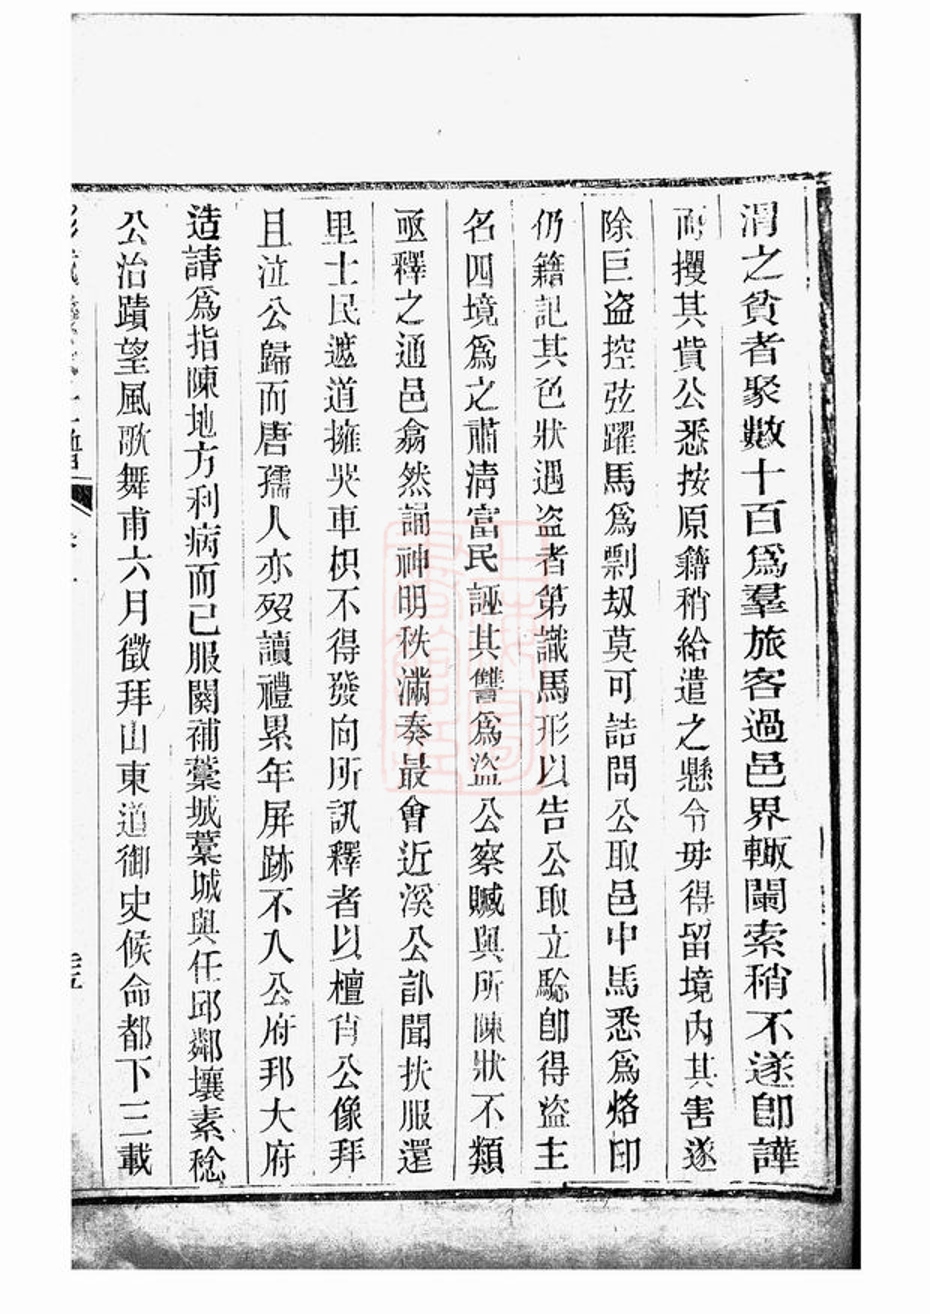 渭之貧者聚數十百爲羣旅客過邑界輙闌索稍不遂卽譁
而攫其貲公悉按原籍稍給遣之懸令毋得留境內其害遂
除巨盜控弦躍馬爲剽刼莫可詰問公取邑中馬悉爲烙印
仍籍記其色狀遇盜者第識馬形以告公取立驗卽得盜主
名四境爲之肅淸富民誣其讐爲盜公察贓與所陳狀不類
亟釋之通邑翕然誦神明秩滿奏最會近溪公訃聞扶服還
里士民遮道擁哭車枳不得發向所訊釋者以檀肖公像拜
且泣公歸而唐孺人亦歿讀禮累年屏跡不入公府邦大府
造請爲指陳地方利病而已服闋補藁城藁城與任邱鄰壤素稔
公治蹟望風歌舞甫六月徵拜山東道御史候命都下三載